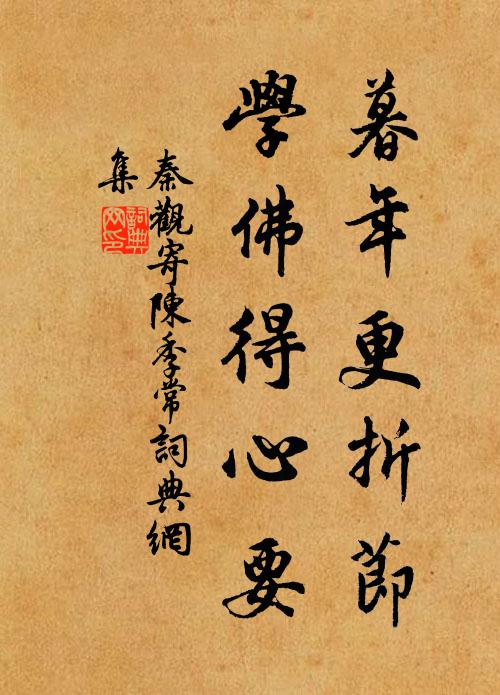 暮年更折節
學佛得心要
秦觀寄陳季常詞典網
集
詞典
網印